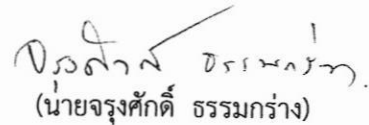 จรุงศักดิ์ ธรรมกร่าง
(นายจรุงศักดิ์ ธรรมกร่าง)